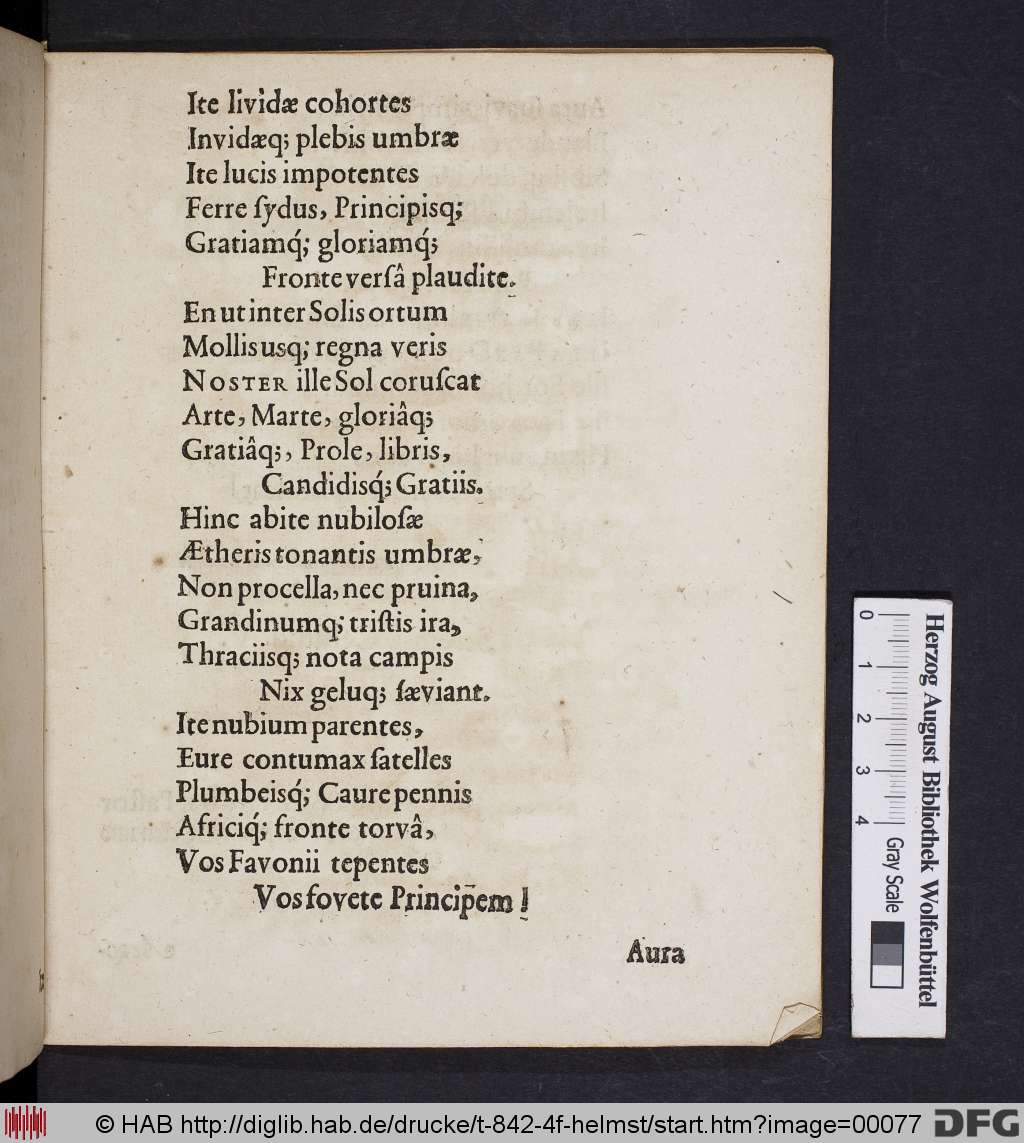 Ite lividæ cohortes
Invidæq; plebis umbræ
Ite lucis impotentes
Ferre ſydus, Principisq;
Gratiamq́; gloriamq́;
Fronte verſâ plaudite.
En ut inter Solis ortum
Mollis usq; regna veris
NOSTER ille Sol coruſcat
Arte, Marte, gloriâq;
Gratiâq;, Prole, libris,
Candidisq́; Gratiis.
Hinc abite nubiloſæ
Ætheris tonantis umbræ,
Non procella, nec pruina,
Grandinumq; triſtis ira,
Thraciisq; nota campis
Nix geluq; ſæviant.
Ite nubium parentes,
Eure contumax ſatelles
Plumbeisq́; Caure pennis
Africiq́; fronte torvâ,
Vos Favonii tepentes
Vos fovete Principem!
Aura
0 1 2 3 4
Gray Scale
Herzog August Bibliothek Wolfenbüttel
© HAB http://diglib.hab.de/drucke/t-842-4f-helmst/start.htm?image=00077
DFG